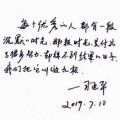 每个优秀的人都有一段
沉默的时光,那段时光,是付出
了很多努力,却得不到结果的日子,
我们把它叫做扎根
2019.7.10